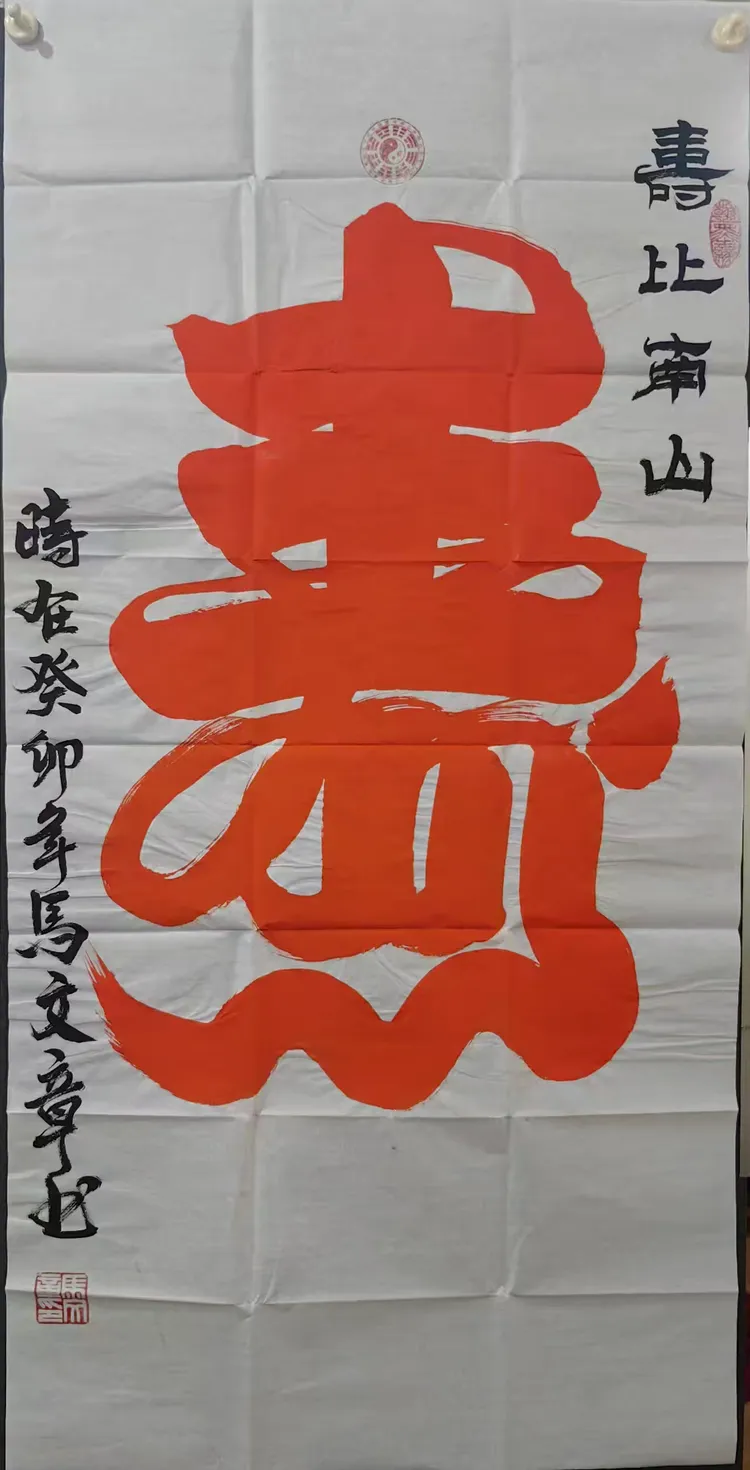 壽比南山
壽
時在癸卯年馬文章书